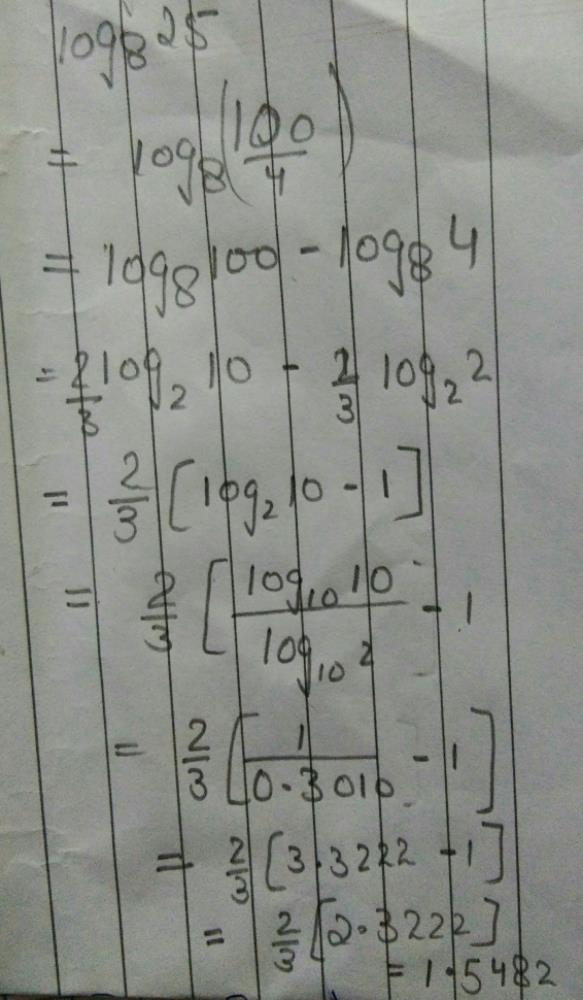 log₈ 25
= log₈(100/4)
= log₈ 100 - log₈ 4
= 2/3 log₂ 10 - 2/3 log₂ 2
= 2/3 [log₂ 10 - 1]
= 2/3 [log₁₀ 10 / log₁₀ 2 - 1
= 2/3 [1/0.3010 - 1]
= 2/3 [3.3222 - 1]
= 2/3 [2.3222]
= 1.5482